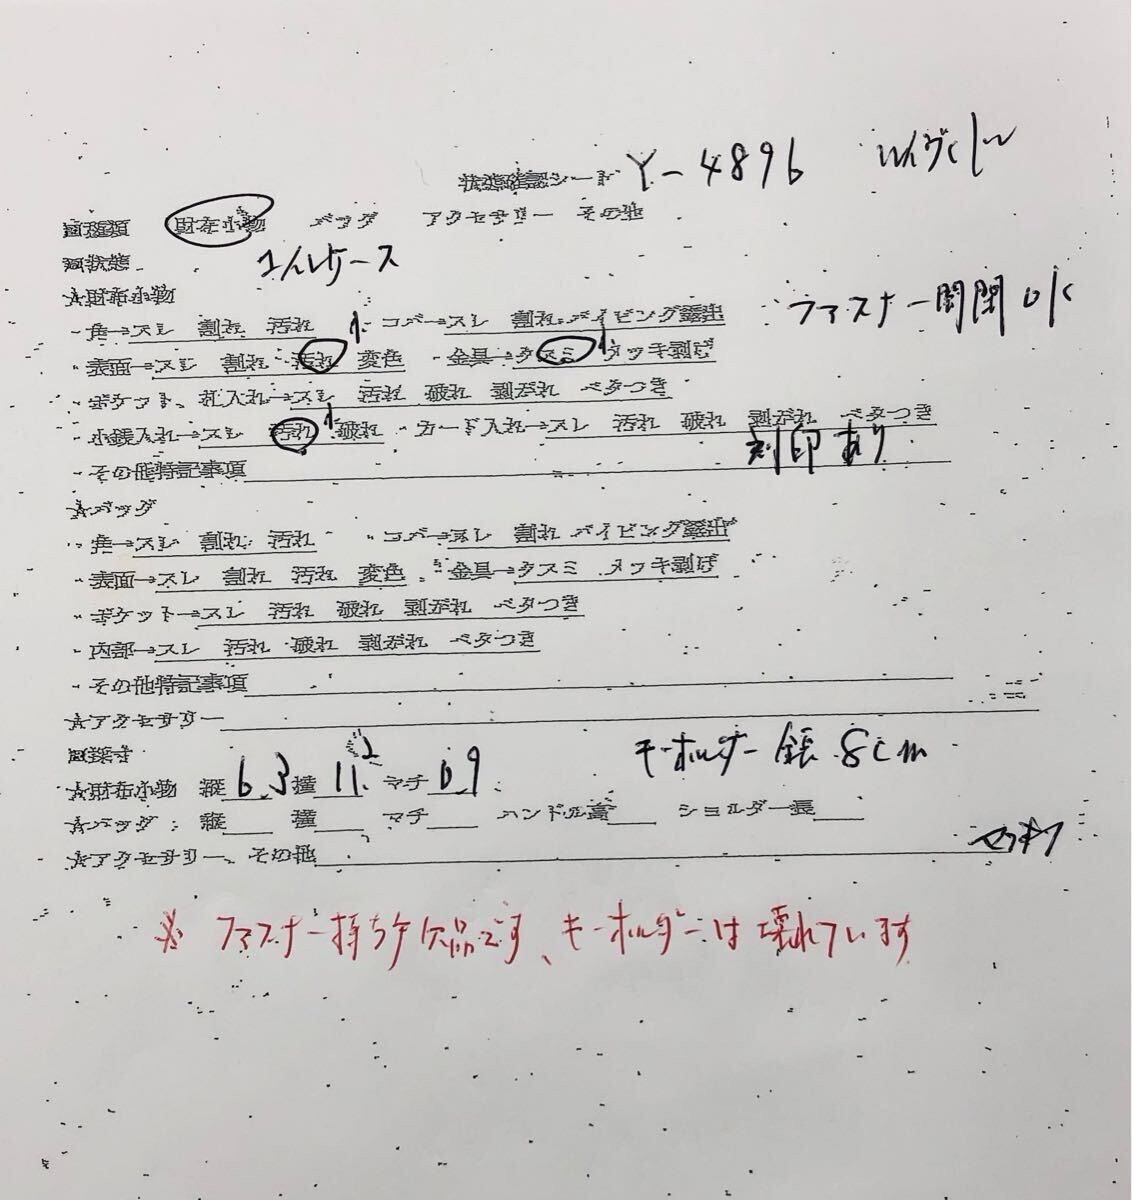 状態確認シート Y-4896 ルイヴィトン
□種類 財布小物 バッグ アクセサリー その他
□状態 コインケース
☆財布小物
・角→スレ 割れ 汚れ ・コバ→スレ 割れ パイピング露出 ファスナー開閉OK
・表面→スレ 割れ 汚れ 小 変色 ・金具→クスミ 小 メッキ剥げ
・ポケット、札入れ→スレ 汚れ 破れ 剥がれ ベタつき
・小銭入れ→スレ 汚れ 小 破れ ・カード入れ→スレ 汚れ 破れ 剥がれ ベタつき
・その他特記事項 刻印あり
☆バッグ
・角→スレ 割れ 汚れ ・コバ→スレ 割れ パイピング露出
・表面→スレ 割れ 汚れ 変色 ・金具→クスミ メッキ剥げ
・ポケット→スレ 汚れ 破れ 剥がれ ベタつき
・内部→スレ 汚れ 破れ 剥がれ ベタつき
・その他特記事項
☆アクセサリー
□採寸 キーホルダー鎖8cm
☆財布小物 縦 6.3 横 11.2 マチ 0.9
☆バッグ:縦 横 マチ ハンドル高 ショルダー長
☆アクセサリー、その他
※ファスナー持ち手欠品です、キーホルダーは壊れています